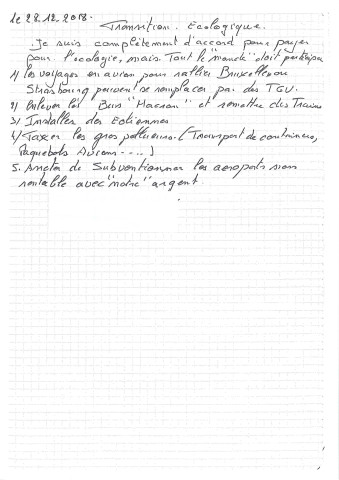 le 28.12.2018.
Transition. Ecologique.
. Je suis complètement d'accord pour payer
pour l'écologie, mais Tout le "monde" doit participer
1) les voyages en avion pour rallier Bruxelles ou
Strasbourg peuvent se remplacer par des TGV.
2) Enlever les Bus "Macron" et remettre des Trains
3) Installer des Eoliennes
4) Taxer les gros pollueurs. (Transport de containers,
Paquebots Avions ....)
5. Arreter de Subventionner les aeroports non
rentable avec "notre" argent.